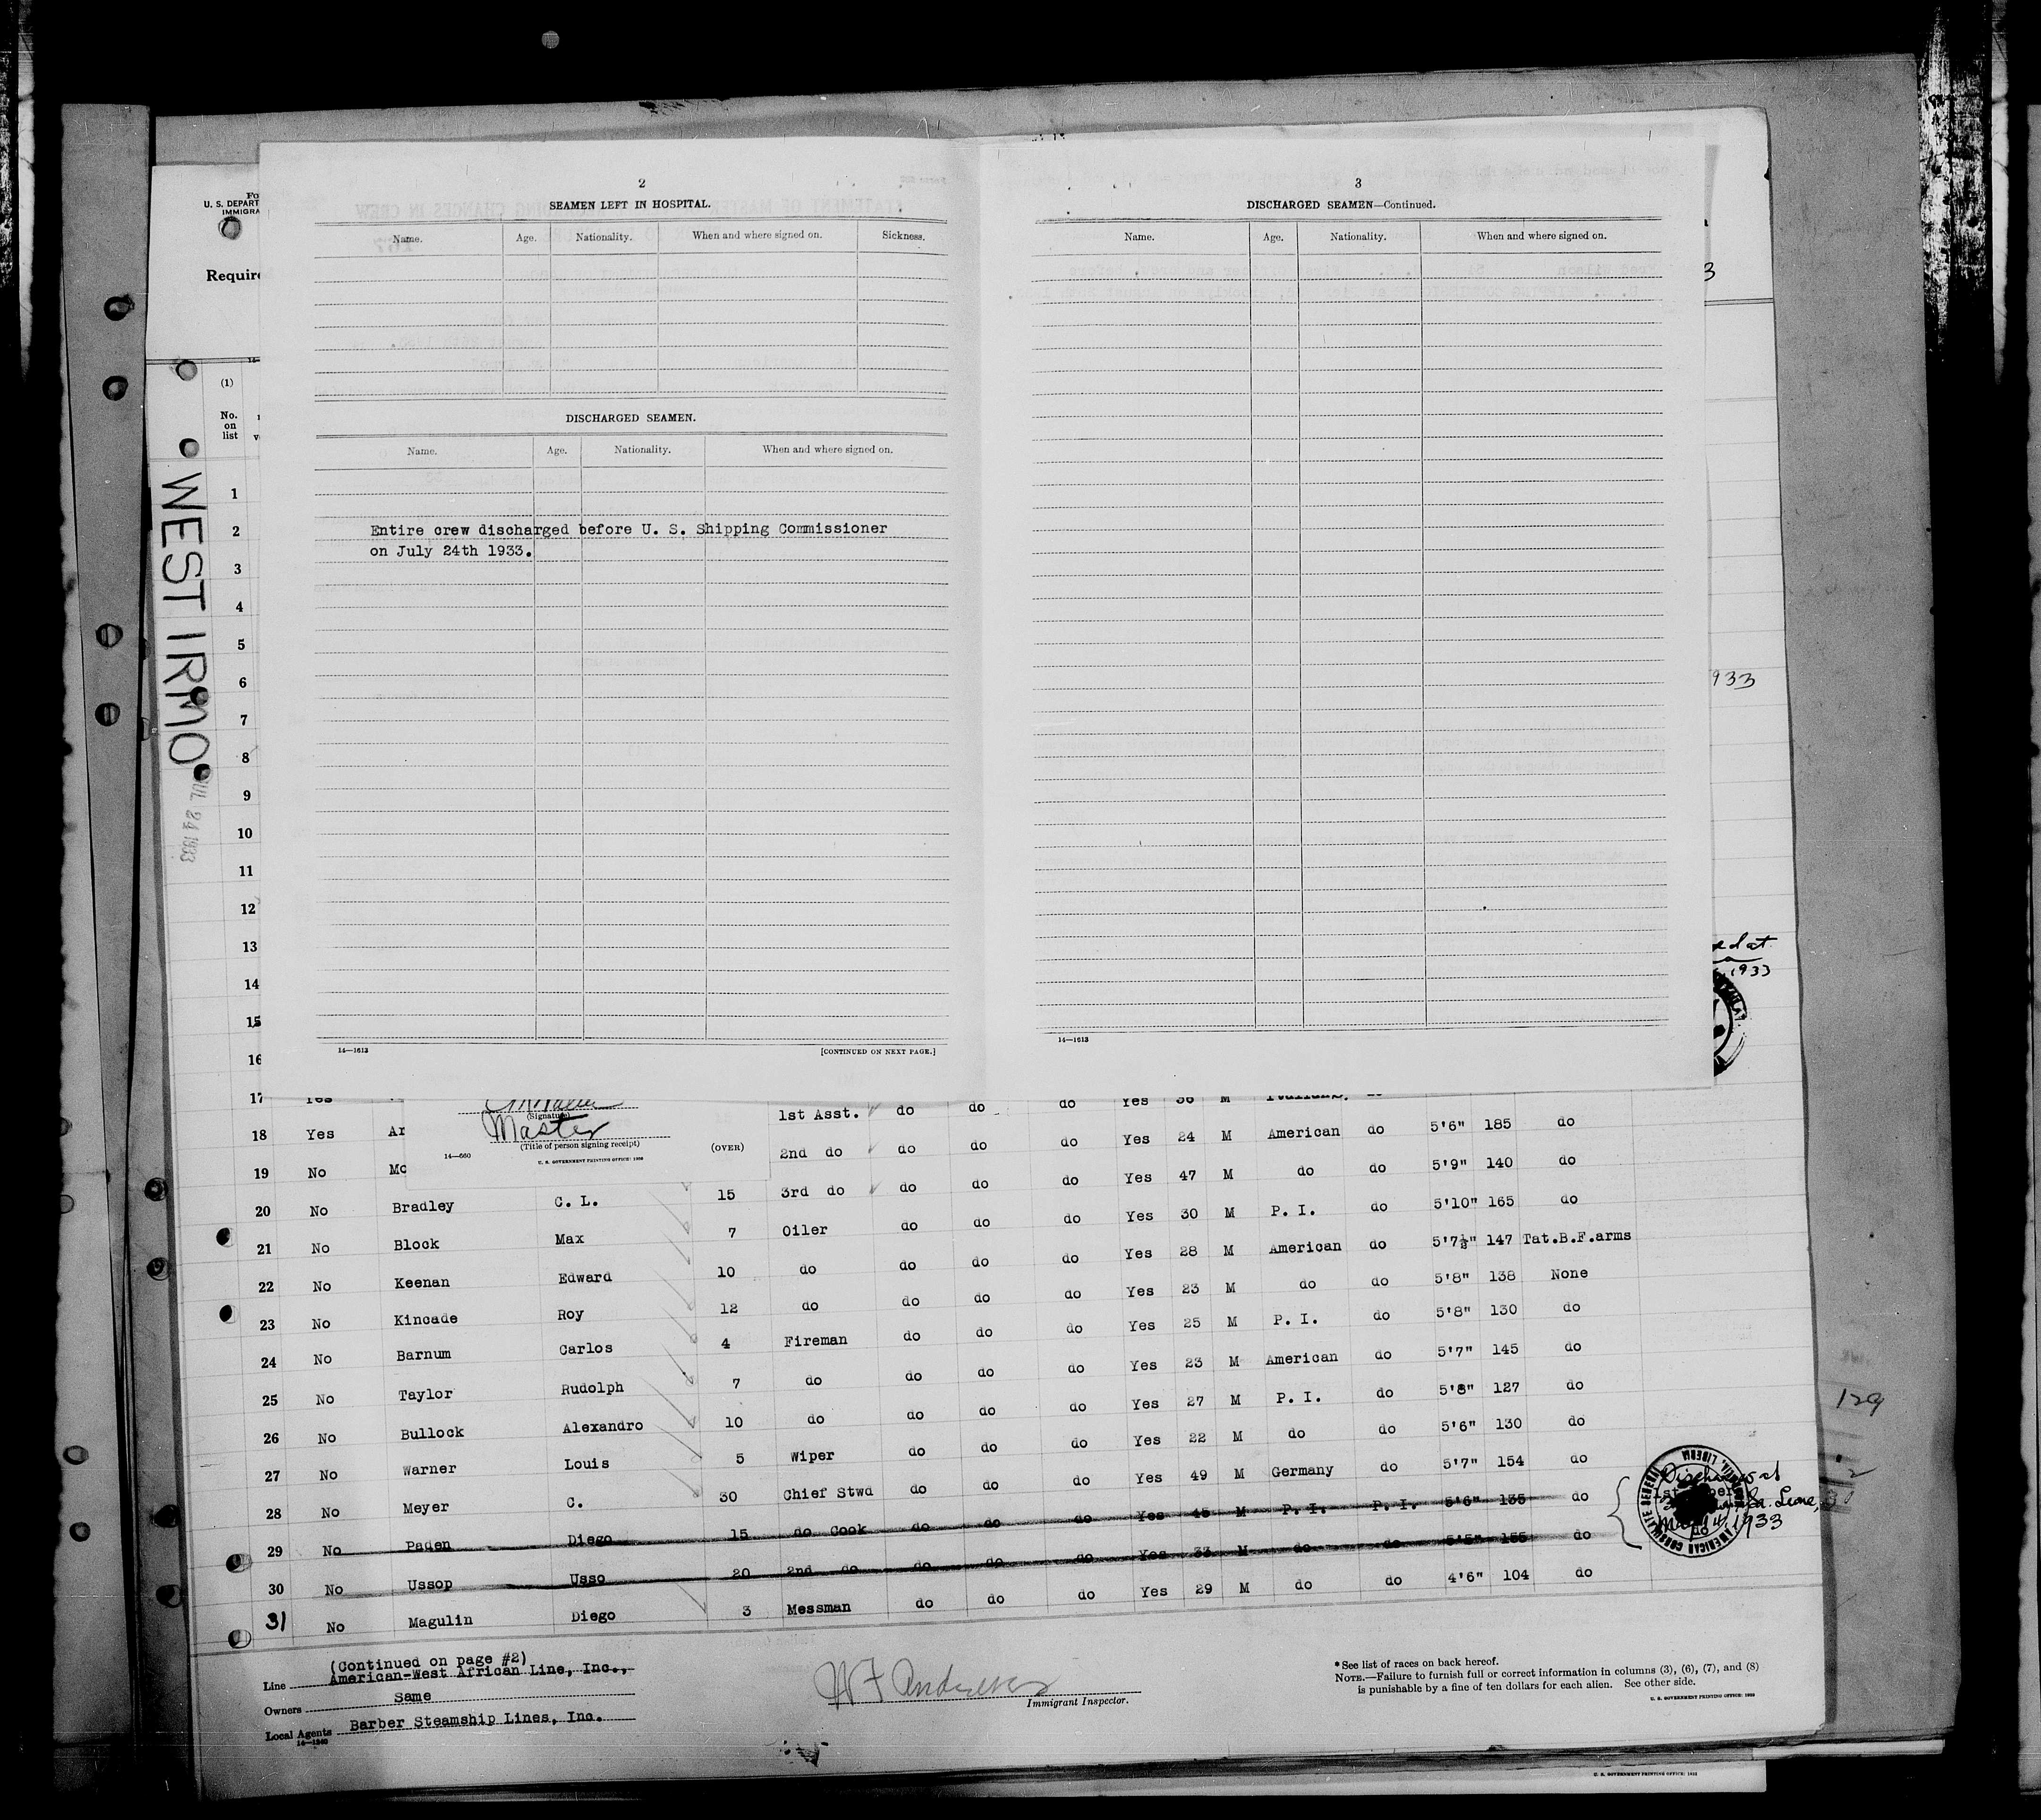 2
SEAMEN LEFT IN HOSPITAL.
Name. Age. Nationality. When and where signed on. Sickness.
DISCHARGED SEAMEN.
Name. Age. Nationality. When and where signed on.
Entire crew discharged before U. S. Shipping Commissioner
on July 24th 1933.
14—1613 [CONTINUED ON NEXT PAGE.]
3
DISCHARGED SEAMEN—Continued.
Name. Age. Nationality. When and where signed on.
14—1613
U. S. DEPART
IMMIGRA
Require
(1)
No.
on
list
WEST IRMO
UL 24 1933
3
933
ed at
1933
1
2
3
4
5
6
7
8
9
10
11
12
13
14
15
16
17 Yes 1st Asst. do do do Yes 36 M
18 Yes Ar 2nd do do do do Yes 24 M American do 5'6" 185 do
19 No Mc 3rd do do do do Yes 47 M do do 5'9" 140 do
(Signature)
Master
(Title of person signing receipt)
14—660 (OVER)
U. S. GOVERNMENT PRINTING OFFICE:
20 No Bradley C. L. 15 3rd do do do do Yes 30 M P. I. do 5'10" 165 do
21 No Block Max 7 Oiler do do do Yes 28 M American do 5'7½" 147 Tat.B.F.arms
22 No Keenan Edward 10 do do do do Yes 23 M do do 5'8" 138 None
23 No Kincade Roy 12 do do do do Yes 25 M P. I. do 5'8" 130 do
24 No Barnum Carlos 4 Fireman do do do Yes 23 M American do 5'7" 145 do
25 No Taylor Rudolph 7 do do do do Yes 27 M P. I. do 5'8" 127 do
26 No Bullock Alexandro 10 do do do do Yes 22 M do do 5'6" 130 do
27 No Warner Louis 5 Wiper do do do Yes 49 M Germany do 5'7" 154 do
28 No Meyer C. 30 Chief Stwd do do do Yes 45 M P. I. P. I. 5'6" 135 do
29 No Paden Diego 15 do Cook do do do Yes 33 M do do 5'5" 155 do
30 No Ussop Usso 20 2nd do do do do Yes 29 M do do 4'6" 104 do
31 No Magulin Diego 3 Messman do do do
AMERICAN CONSULAR
LIBERIA
1933
129
(Continued on page #2)
Line American-West African Line, Inc.,
Owners Same
Local Agents Barber Steamship Lines, Inc.
W F Andrews
Immigrant Inspector.
* See list of races on back hereof.
NOTE.—Failure to furnish full or correct information in columns (3), (6), (7), and (8)
is punishable by a fine of ten dollars for each alien. See other side.
U. S. GOVERNMENT PRINTING OFFICE:
U. S. GOVERNMENT PRINTING OFFICE: